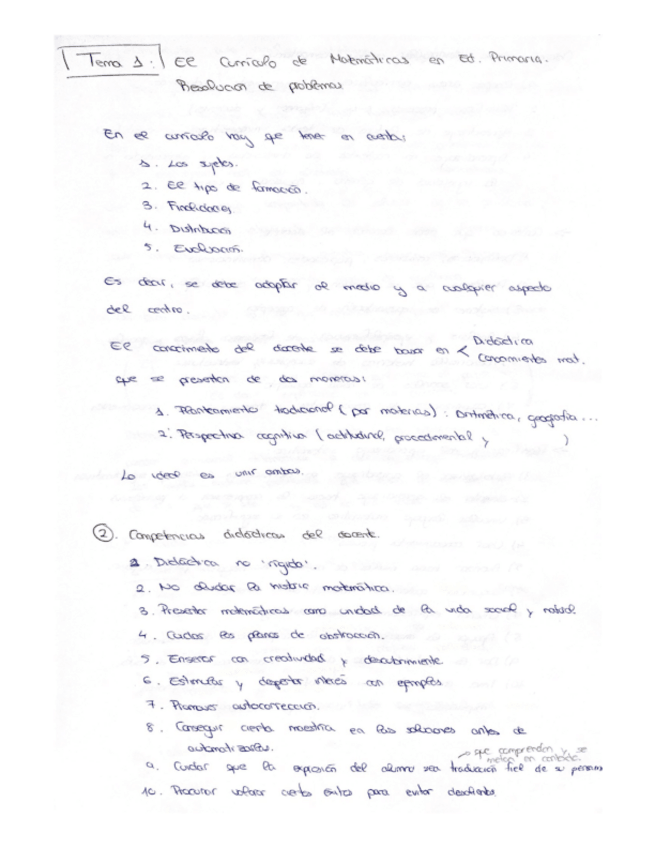 Tema 1: El Currículo de Matemáticas en Ed. Primaria.
Resolución de problemas
En el currículo hay que tener en cuenta:
1. Los sujetos.
2. El tipo de formación.
3. Finalidades
4. Distribución
5. Evaluación.
Es decir, se debe adaptar al medio y a cualquier aspecto
del centro.
El conocimiento del docente se debe basar en < Didáctica
Conocimientos mat.
que se presentan de dos maneras:
1. Planteamiento tradicional (por materias): aritmética, geografía...
2. Perspectiva cognitiva (actitudinal, procedimental y )
Lo ideal es unir ambas.
2. Competencias didácticas del docente.
1. Didáctica no 'rígida'.
2. No olvidar la historia matemática.
3. Presentar matemáticas como unidad de la vida social y natural
4. Cuidar los planos de abstracción.
5. Enseñar con creatividad y descubrimiento
6. Estimular y despertar interés con ejemplos
7. Promover autocorrección.
8. Conseguir cierta maestría en las soluciones antes de
automatizarlas.
→ que comprendan y se
metan en contenido.
9. Cuidar que la expresión del alumno sea traducción fiel de su pensam
10. Procurar valorar cierto éxito para evitar desaliento.